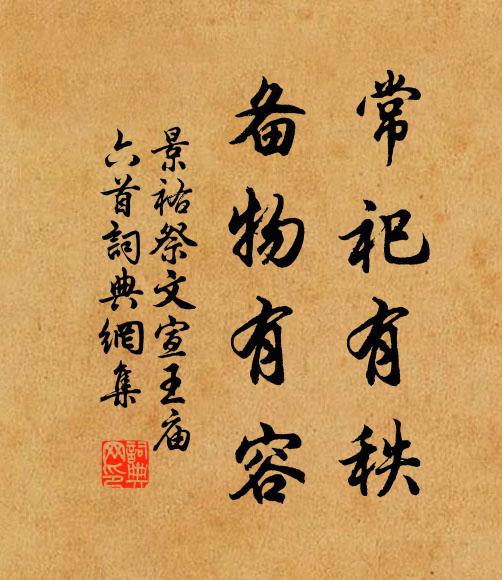 常祀有秩
备物有容
景祐祭文宣王庙
六首詞典網集
詞典网印